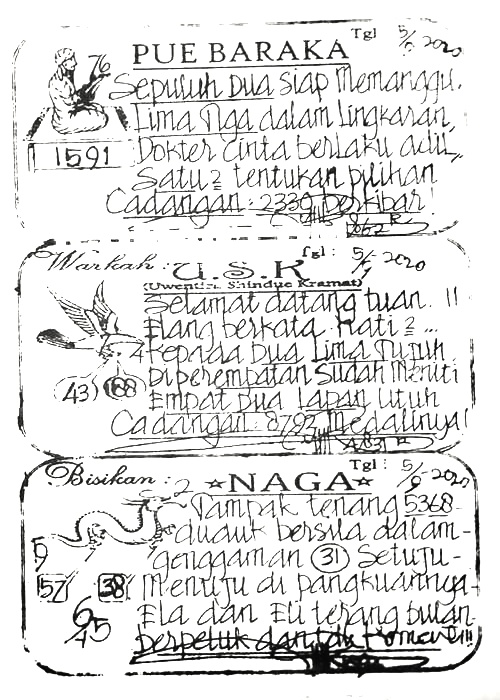 PUE BARAKA Tgl 5/9 2020
76 Sepuluh Dua siap Memanggu.
Lima Tiga dalam Lingkaran,
1591 Dokter cinta berlaku adil,,
Satu 2 tentukan pilihan
Cadangan : 2330 berkibar!
Warkah : U.S.K tgl : 5/9 - 2020
(Uwentira Shindue Kramat)
Selamat datang tuan. !!
Elang berkata Hati 2 ...
4 Kepada Dua Lima Tujuh
43 168 Diperempatan Sudah Menuti
Empat Dua Lapan Utuh
Cadangan : 8792 Medalinya!
Bisikan : 2 NAGA Tgl : 5/9 2020
Tampak tenang 5368-
duduk bersila dalam-
9 genggaman 31 Setuju-
57 38 Menuju di pangkuannya-
6/45 Ela dan Eli terang bulan
berpeluk dan tak